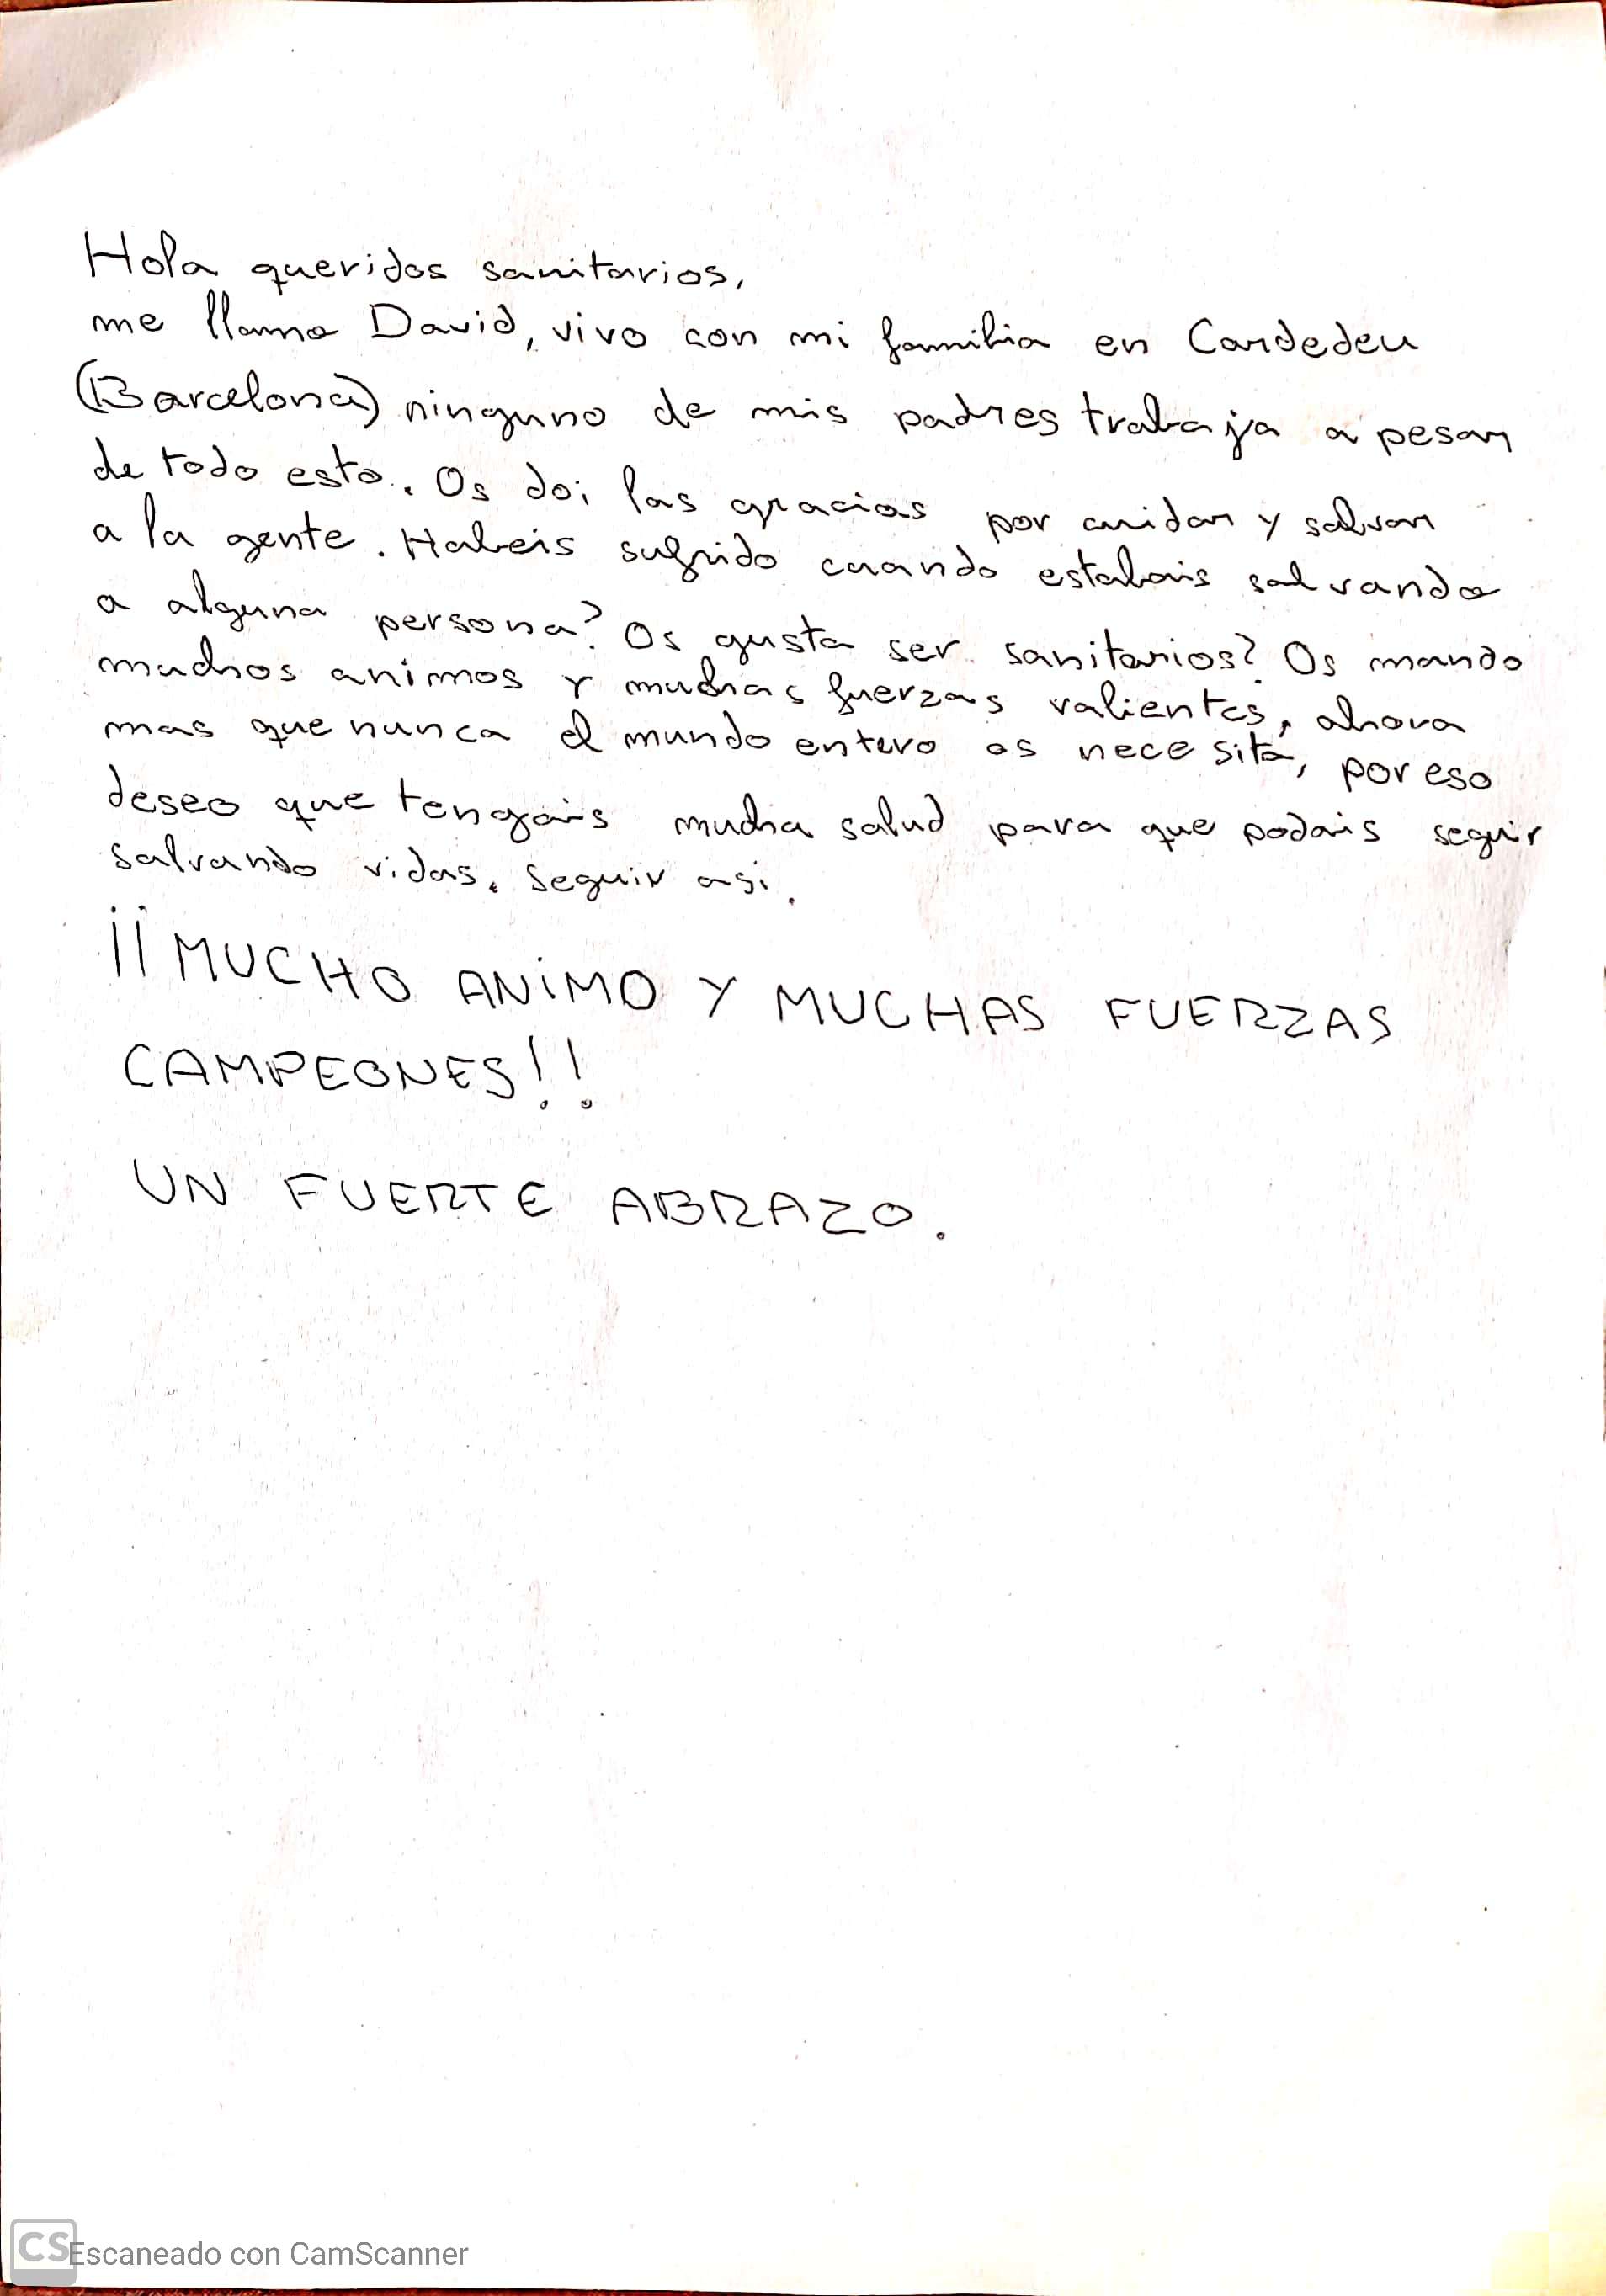 Hola queridos sanitarios,
me llamo David, vivo con mi familia en Cardedeu
(Barcelona) ninguno de mis padres trabaja a pesar
de todo esto. Os doi las gracias por cuidar y salvar
a la gente. Habeis sufrido cuando estabais salvando
a alguna persona? Os gusta ser sanitarios? Os mando
muchos animos y muchas fuerzas valientes, ahora
mas que nunca el mundo entero os necesita, por eso
deseo que tengais mucha salud para que podais seguir
salvando vidas. Seguir asi.
¡¡MUCHO ANIMO Y MUCHAS FUERZAS
CAMPEONES!!
UN FUERTE ABRAZO.
CS Escaneado con CamScanner